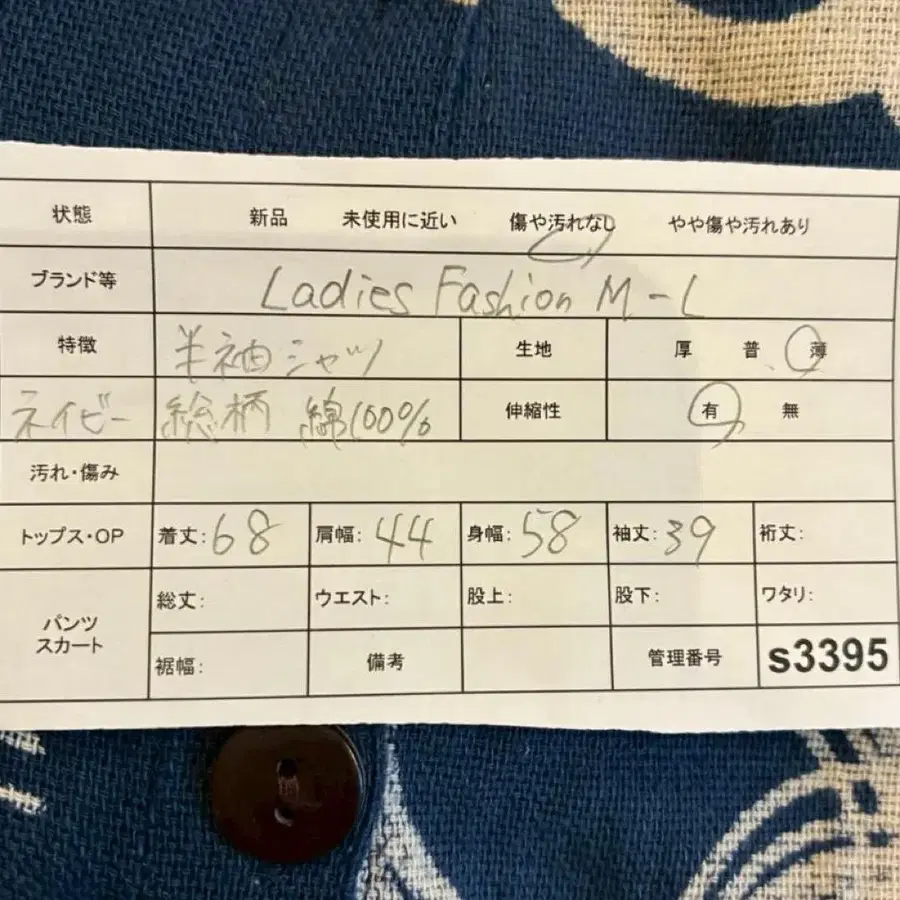 状態 新品 未使用に近い 傷や汚れなし やや傷や汚れあり
ブランド等 Ladies Fashion M-L
特徴 半袖シャツ 生地 厚 普 薄
ネイビー 総柄 綿100% 伸縮性 有 無
汚れ・傷み
トップス・OP 着丈:68 肩幅:44 身幅:58 袖丈:39 裄丈:
パンツ スカート 総丈: ウエスト: 股上: 股下: ワタリ:
裾幅: 備考 管理番号 s3395